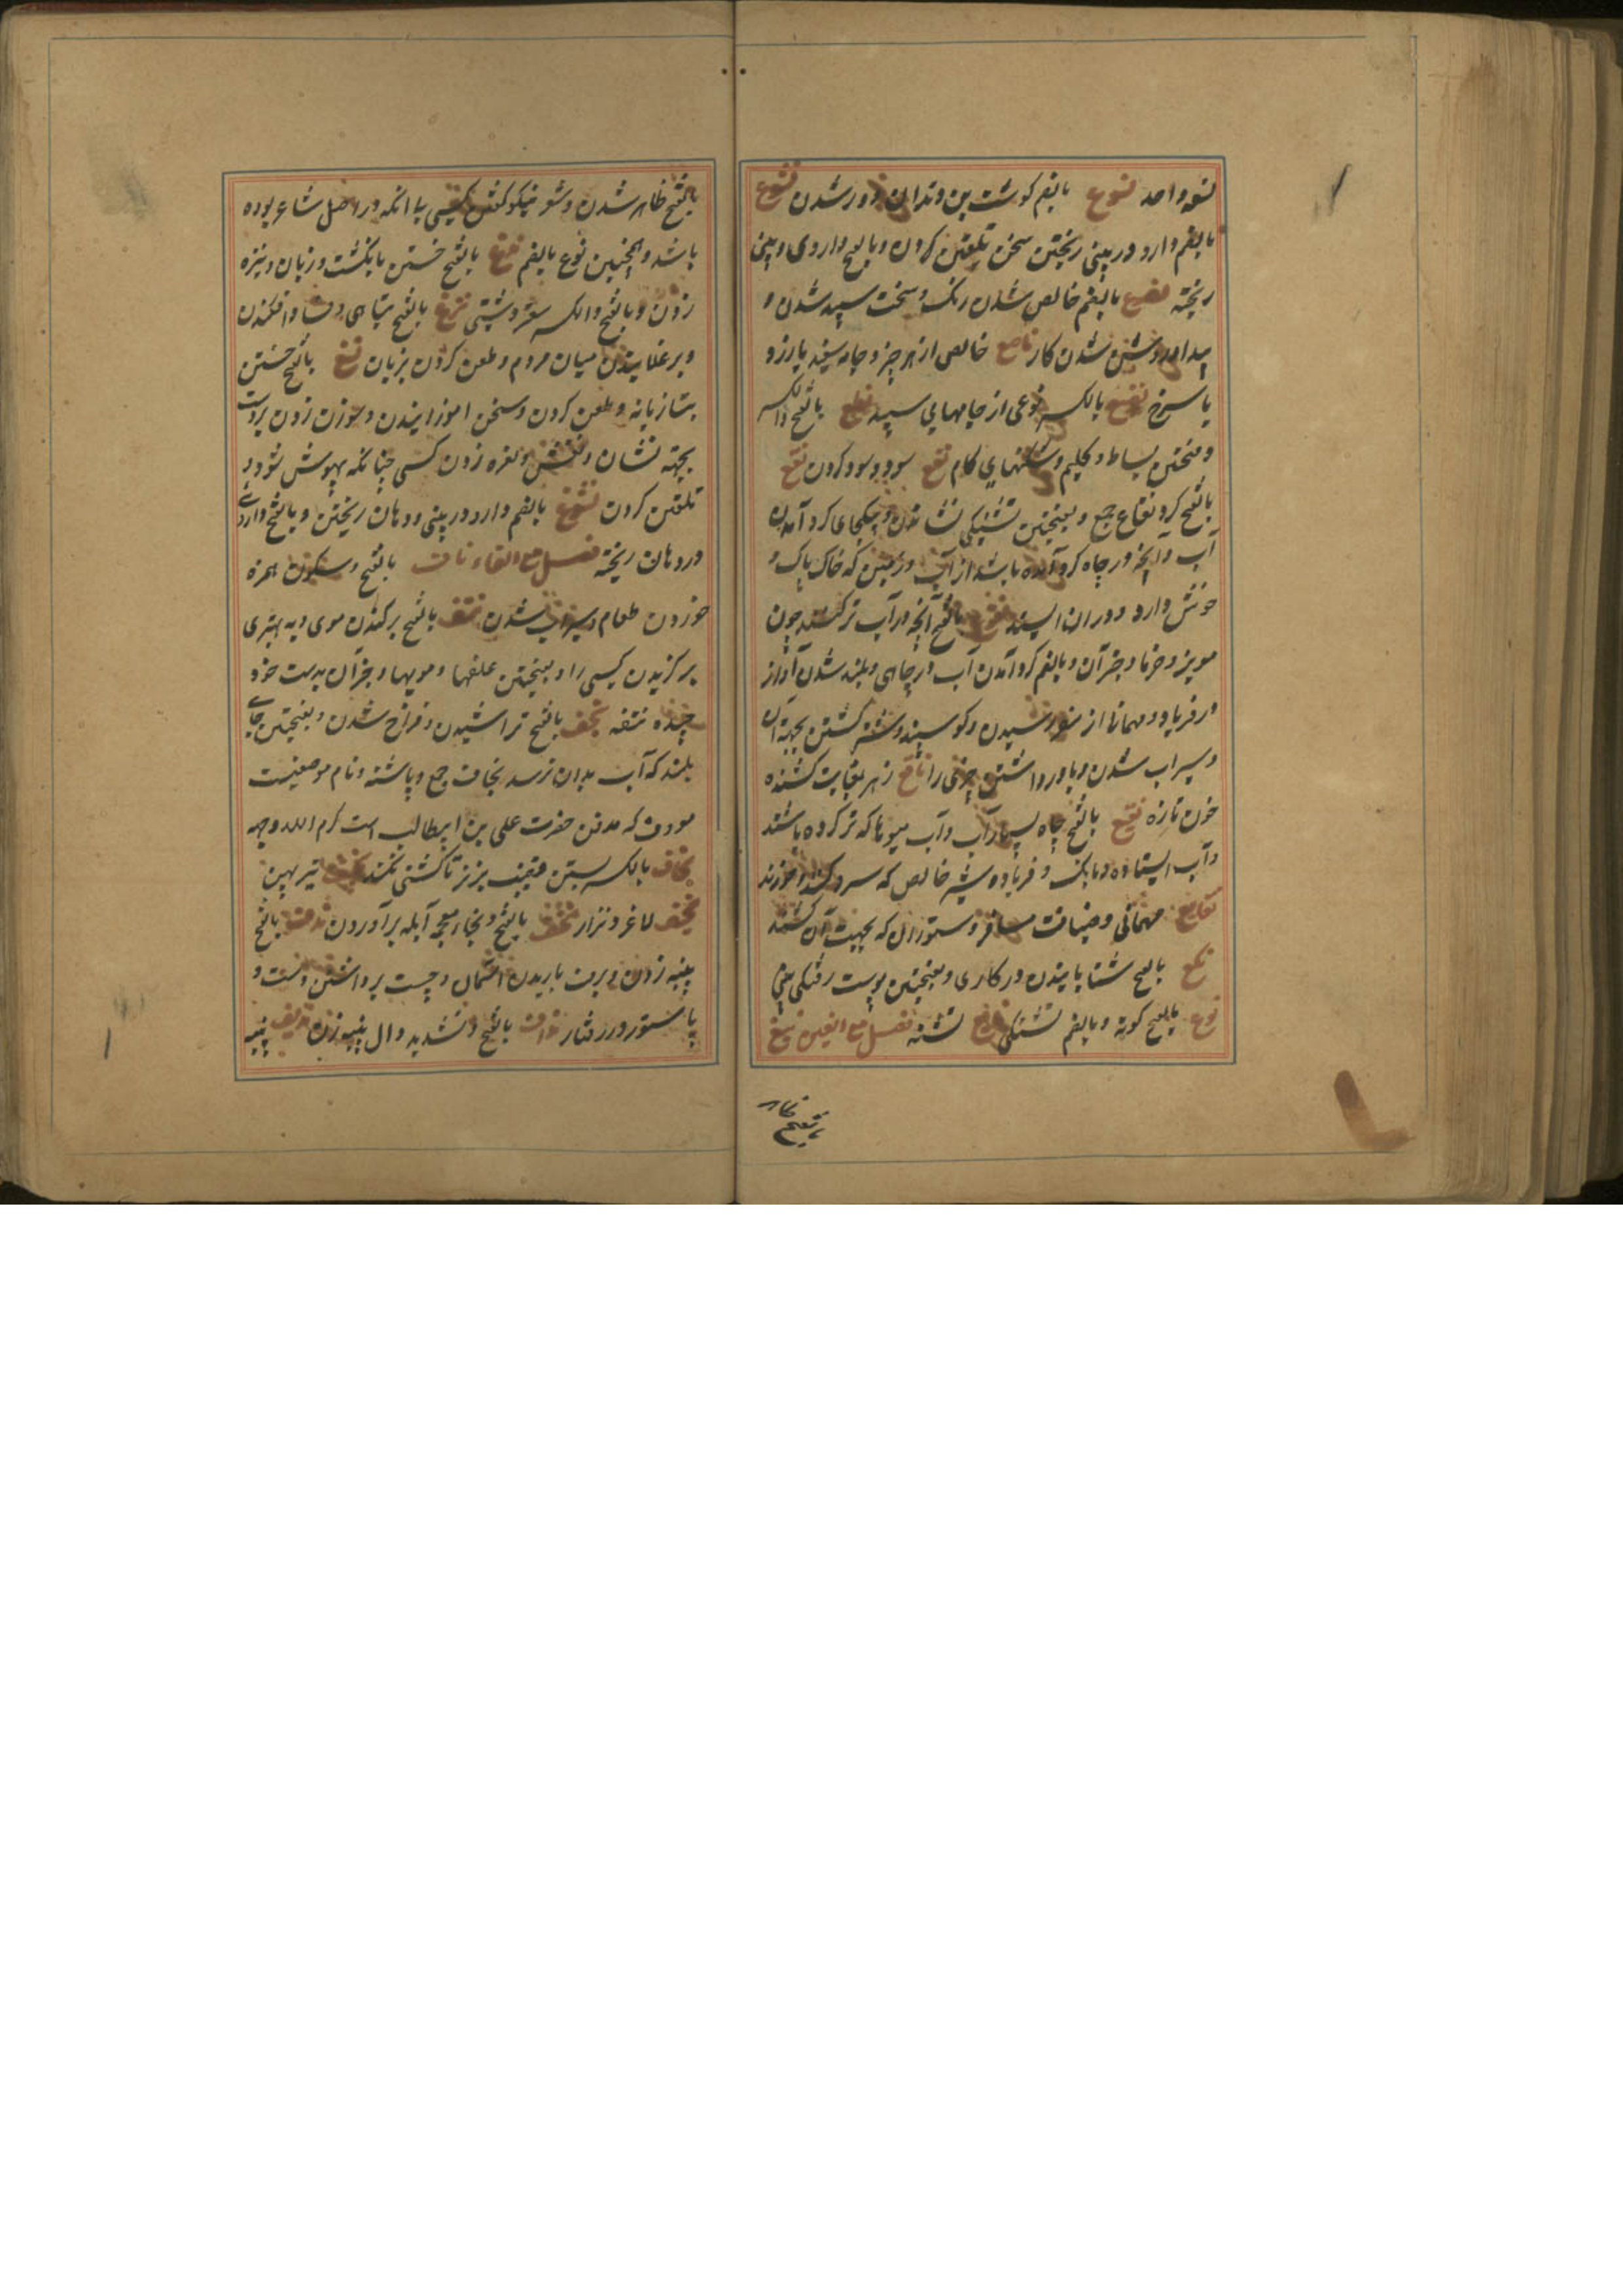 نسعه واحد نسوع بالضم گوشت بن دندان دور شدن نشوع
بالضم دارو در بینی ریختن سخن تلقین کردن و بالفتح داروی در بینی
ریخته نصوع بالضم خالص شدن رنگ و سخت سپید شدن و
پیدا و روشن شدن کار ناصع خالص از هر چیز و جامه سفید یا زرد و
یا سرخ نصع بالکسر نوعی از جامهای سپید نطع بالفتح والکسر
وفتحتین بساط و گلیم و شکنهای کام نفع سود و سود کردن نقع
بالفتح گرد نقاع جمع و بفتحتین تشنگی نشاندن و بیکجای گرد آمدن
آب و آنچه در چاه گرد آمده باشد از آب و زمین که خاک پاک و
خوش دارد و در ان ایستد نقوع بالفتح آنچه در آب تر کنند چون
مویز و خرما و جز آن و بالضم گرد آمدن آب در جای و بلند شدن آواز
در فریاد و مهمانی از سفر رسیدن و گوسپند و شتر کشتن بجهة آن
و سیراب شدن و باور داشتن چیزی را ناقع زهر بغایت کشنده
خون تازه نقیع بالفتح چاه بسیار آب و آب میوها که تر کرده باشند
و آب ایستاده و بانگ و فریاد و شیر خالص که سرد کنند و خورند
نقایع مهمانی و ضیافت مسافر و ستوران که بجهت آن کشند
نکع بالفتح شتابانیدن در کاری و بفتحتین پوست رفتگی بینی
نوع بالفتح گونه و بالضم تشنگی نایع تشنه فصل مع الغین نبغ
بالفتح ظاهر شدن و شعر نیکو گفتن کسی با آنکه در اصل شاعر بوده
باشد و همچنین نبوغ بالضم ندغ بالفتح خستن بانگشت و زبان و نیزه
زدن و بالفتح والکسر سعتر دشتی نزغ بالفتح تباهی و فساد افکندن
و برغلانیدن میان مردم و طعن کردن بزبان نسغ بالفتح خستن
بتازیانه و طعن کردن و سخن آموزانیدن و سوزن زدن بر دست
بجهة نشان و نقش و نعره زدن کسی چنانکه بیهوش شود و
تلقین کردن نشوغ بالضم دارو در بینی و دهان ریختن و بالفتح داروی
در دهان ریخته فصل مع الفاء نأف بالفتح و سکون همزه
خوردن طعام و سیراب شدن نتف بالفتح برکندن موی و به بهتری
برگزیدن کسی را و بفتحتین علفها و مویها و جز آن بدست خود
چیده نتفه نجف بالفتح تراشیدن و فراخ شدن و بفتحتین جای
بلند که آب بدان نرسد نجاف جمع و پاشنه و نام موضعیست
معروف که مدفن حضرت علی بن ابیطالب است کرم الله وجهه
نجاف بالکسر بستن قضیب بز نر تا گشنی نکند نجیف تیر پهن
نحیف لاغر و نزار نخف بالفتح و بخاء معجمه آبله برآوردن ندف بالفتح
پنبه زدن و برف باریدن آسمان و چست برداشتن دست و
پا ستور در رفتار نداف بالفتح و تشدید دال پنبه زن ندیف پنبه